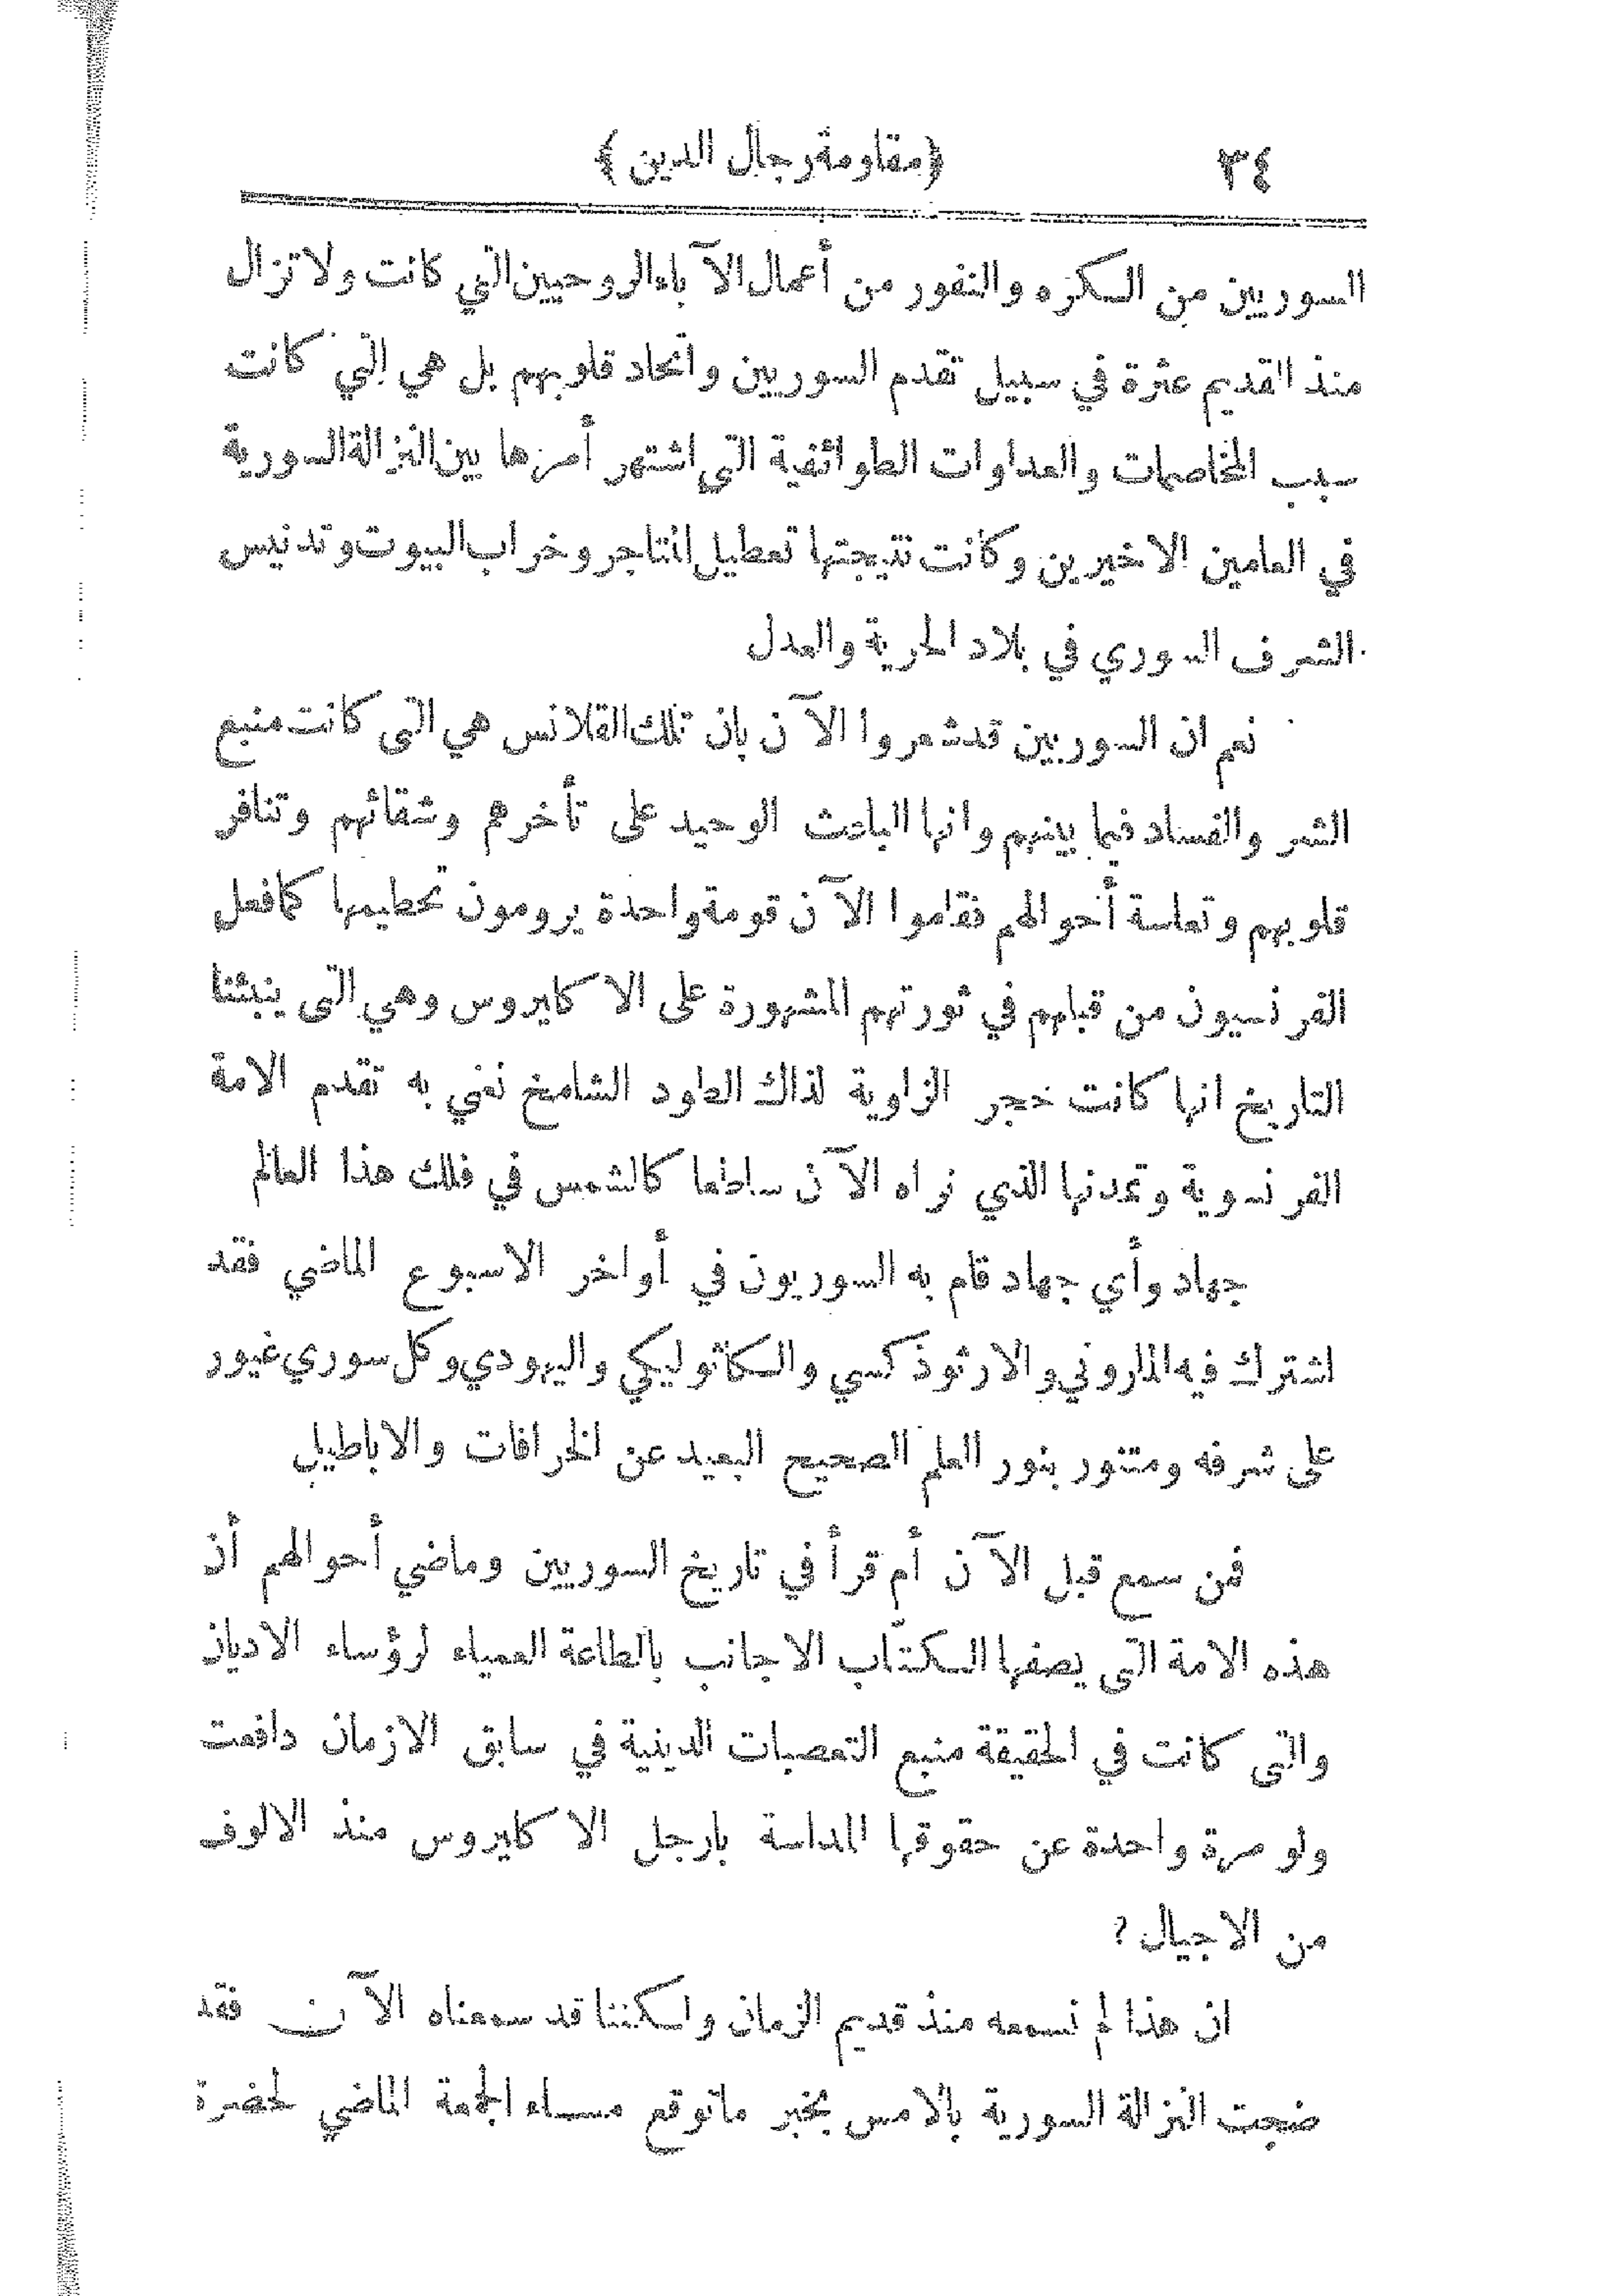 ٣٤
﴿مقاومة رجال الدين﴾
السوريين من الكره والنفور من أعمال الآباء الروحيين التي كانت ولا تزال
منذ القديم عثرة في سبيل تقدم السوريين واتحاد قلوبهم بل هي التي كانت
سبب المخاصمات والعداوات الطوائفية التي اشتهر أمرها بين النزالة السورية
في العامين الاخيرين وكانت نتيجتها تعطيل المتاجر وخراب البيوت وتدنيس
الشرف السوري في بلاد الحرية والعدل
نعم ان السوريين قد شعروا الآن بان تلك القلانس هي التي كانت منبع
الشر والفساد فيما بينهم وانها الباعث الوحيد على تأخرهم وشقائهم وتنافر
قلوبهم وتعاسة أحوالهم فقاموا الآن قومة واحدة يرومون تحطيمها كما فعل
الفرنسيون من قبلهم في ثورتهم المشهورة على الاكليروس وهي التي ينبئنا
التاريخ انها كانت حجر الزاوية لذاك الطود الشامخ نعني به تقدم الامة
الفرنسوية وتمدنها الذي نراه الآن ساطعا كالشمس في فلك هذا العالم
جهاد وأي جهاد قام به السوريون في أواخر الاسبوع الماضي فقد
اشترك فيه الماروني والارثوذكسي والكاثوليكي واليهودي وكل سوري غيور
على شرفه ومتنور بنور العلم الصحيح البعيد عن الخرافات والاباطيل
فمن سمع قبل الآن أم قرأ في تاريخ السوريين وماضي أحوالهم أن
هذه الامة التي يصفها الكتّاب الاجانب بالطاعة العمياء لرؤساء الاديان
والتي كانت في الحقيقة منبع التعصبات الدينية في سابق الازمان دافعت
ولو مرة واحدة عن حقوقها المداسة بارجل الاكليروس منذ الالوف
من الاجيال ؟
ان هذا لم نسمعه منذ قديم الزمان ولكننا قد سمعناه الآن فقد
ضجت النزالة السورية بالامس بخبر ما توقع مساء الجمعة الماضي لحضرة